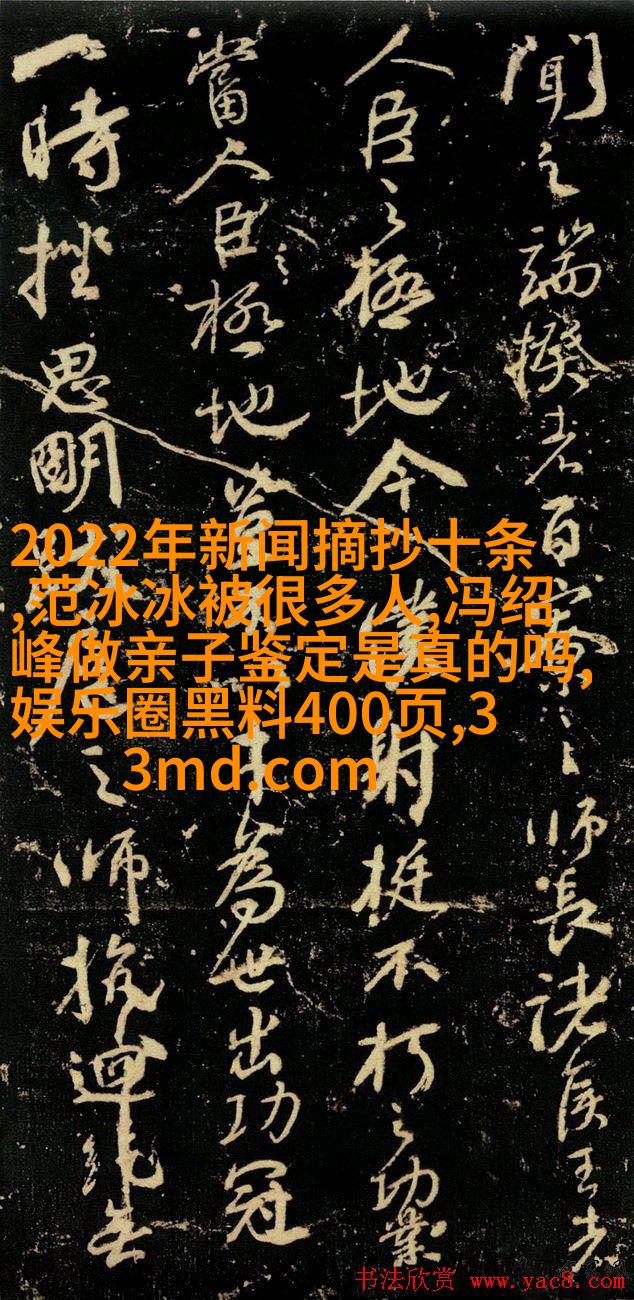 聞之端揆者百寮之師長諸侯王者
人臣之極地今僕射挺不朽之功業
當人臣極地為世出功冠
一時挫思明之師抗迴紇無
2022年新闻摘抄十条
,范冰冰被很多人,冯绍
峰做亲子鉴定是真的吗,
娱乐圈黑料400页,3
3md.com
书法欣赏 www.yac8.com